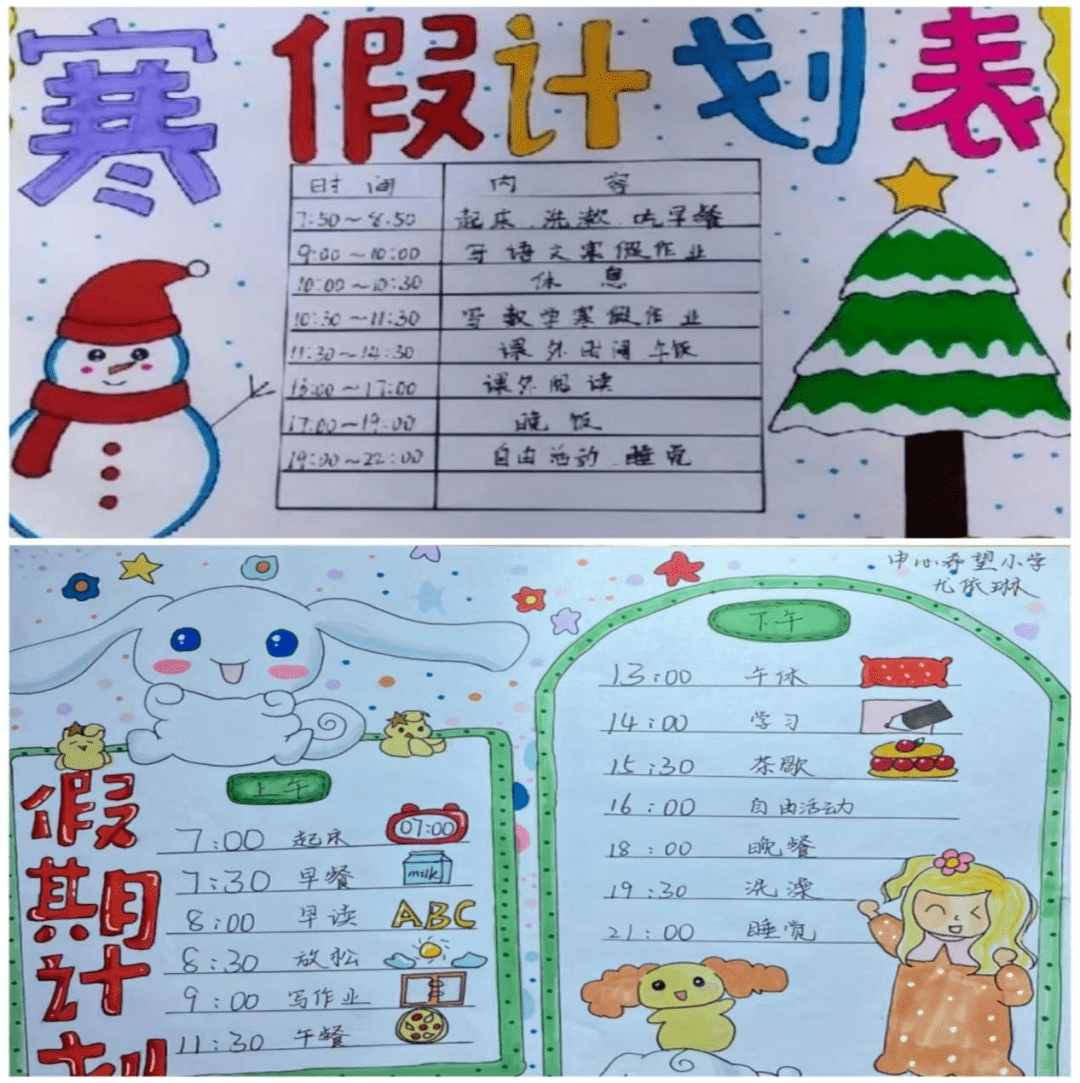 寒假计划表
时间 内容
7:50～8:50 起床、洗漱、吃早餐
9:00～10:00 写语文寒假作业
10:00～10:30 休息
10:30～11:30 写数学寒假作业
11:30～14:30 课外时间 午饭
15:00～17:00 课外阅读
17:00～19:00 晚饭
19:00～22:00 自由活动、睡觉
中心希望小学
尤依琳
假期计划
上午
7:00 起床 07:00
7:30 早餐 milk
8:00 早读 ABC
8:30 放松
9:00 写作业
11:30 午餐
下午
13:00 午休
14:00 学习
15:30 茶歇
16:00 自由活动
18:00 晚餐
19:30 洗澡
21:00 睡觉